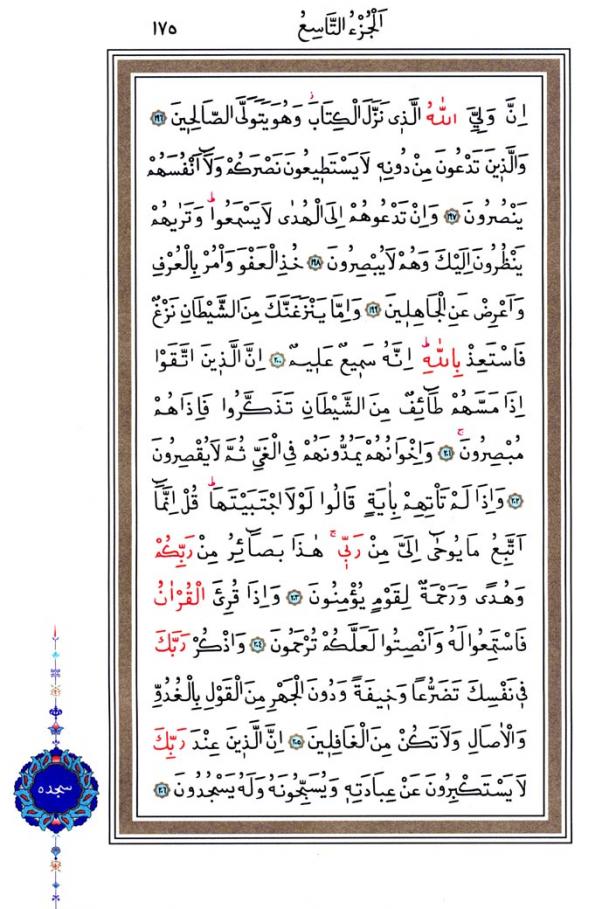 اَلْجُزْءُ التَّاسِعُ
١٧٥
اِنَّ وَلِيِّيَ اللّٰهُ الَّذ۪ي نَزَّلَ الْكِتَابَۘ وَهُوَ يَتَوَلَّى الصَّالِح۪ينَ ﴿١٩٦﴾
وَالَّذ۪ينَ تَدْعُونَ مِنْ دُونِه۪ لَا يَسْتَط۪يعُونَ نَصْرَكُمْ وَلَٓا اَنْفُسَهُمْ
يَنْصُرُونَ ﴿١٩٧﴾ وَاِنْ تَدْعُوهُمْ اِلَى الْهُدٰى لَا يَسْمَعُواۜ وَتَرٰيهُمْ
يَنْظُرُونَ اِلَيْكَ وَهُمْ لَا يُبْصِرُونَ ﴿١٩٨﴾ خُذِ الْعَفْوَ وَأْمُرْ بِالْعُرْفِ
وَاَعْرِضْ عَنِ الْجَاهِل۪ينَ ﴿١٩٩﴾ وَاِمَّا يَنْزَغَنَّكَ مِنَ الشَّيْطَانِ نَزْغٌ
فَاسْتَعِذْ بِاللّٰهِۜ اِنَّهُ سَم۪يعٌ عَل۪يمٌ ﴿٢٠٠﴾ اِنَّ الَّذ۪ينَ اتَّقَوْا
اِذَا مَسَّهُمْ طَٓائِفٌ مِنَ الشَّيْطَانِ تَذَكَّرُوا فَاِذَا هُمْ
مُبْصِرُونَۚ ﴿٢٠١﴾ وَاِخْوَانُهُمْ يَمُدُّونَهُمْ فِي الْغَيِّ ثُمَّ لَا يُقْصِرُونَ
﴿٢٠٢﴾ وَاِذَا لَمْ تَأْتِهِمْ بِاٰيَةٍ قَالُوا لَوْلَا اجْتَبَيْتَهَاۜ قُلْ اِنَّمَٓا
اَتَّبِعُ مَا يُوحٰٓى اِلَيَّ مِنْ رَبّ۪يۚ هٰذَا بَصَٓائِرُ مِنْ رَبِّكُمْ
وَهُدًى وَرَحْمَةٌ لِقَوْمٍ يُؤْمِنُونَ ﴿٢٠٣﴾ وَاِذَا قُرِئَ الْقُرْاٰنُ
فَاسْتَمِعُوا لَهُ وَاَنْصِتُوا لَعَلَّكُمْ تُرْحَمُونَ ﴿٢٠٤﴾ وَاذْكُرْ رَبَّكَ
ف۪ي نَفْسِكَ تَضَرُّعًا وَخ۪يفَةً وَدُونَ الْجَهْرِ مِنَ الْقَوْلِ بِالْغُدُوِّ
وَالْاٰصَالِ وَلَا تَكُنْ مِنَ الْغَافِل۪ينَ ﴿٢٠٥﴾ اِنَّ الَّذ۪ينَ عِنْدَ رَبِّكَ
لَا يَسْتَكْبِرُونَ عَنْ عِبَادَتِه۪ وَيُسَبِّحُونَهُ وَلَهُ يَسْجُدُونَ ﴿٢٠٦﴾
سجده